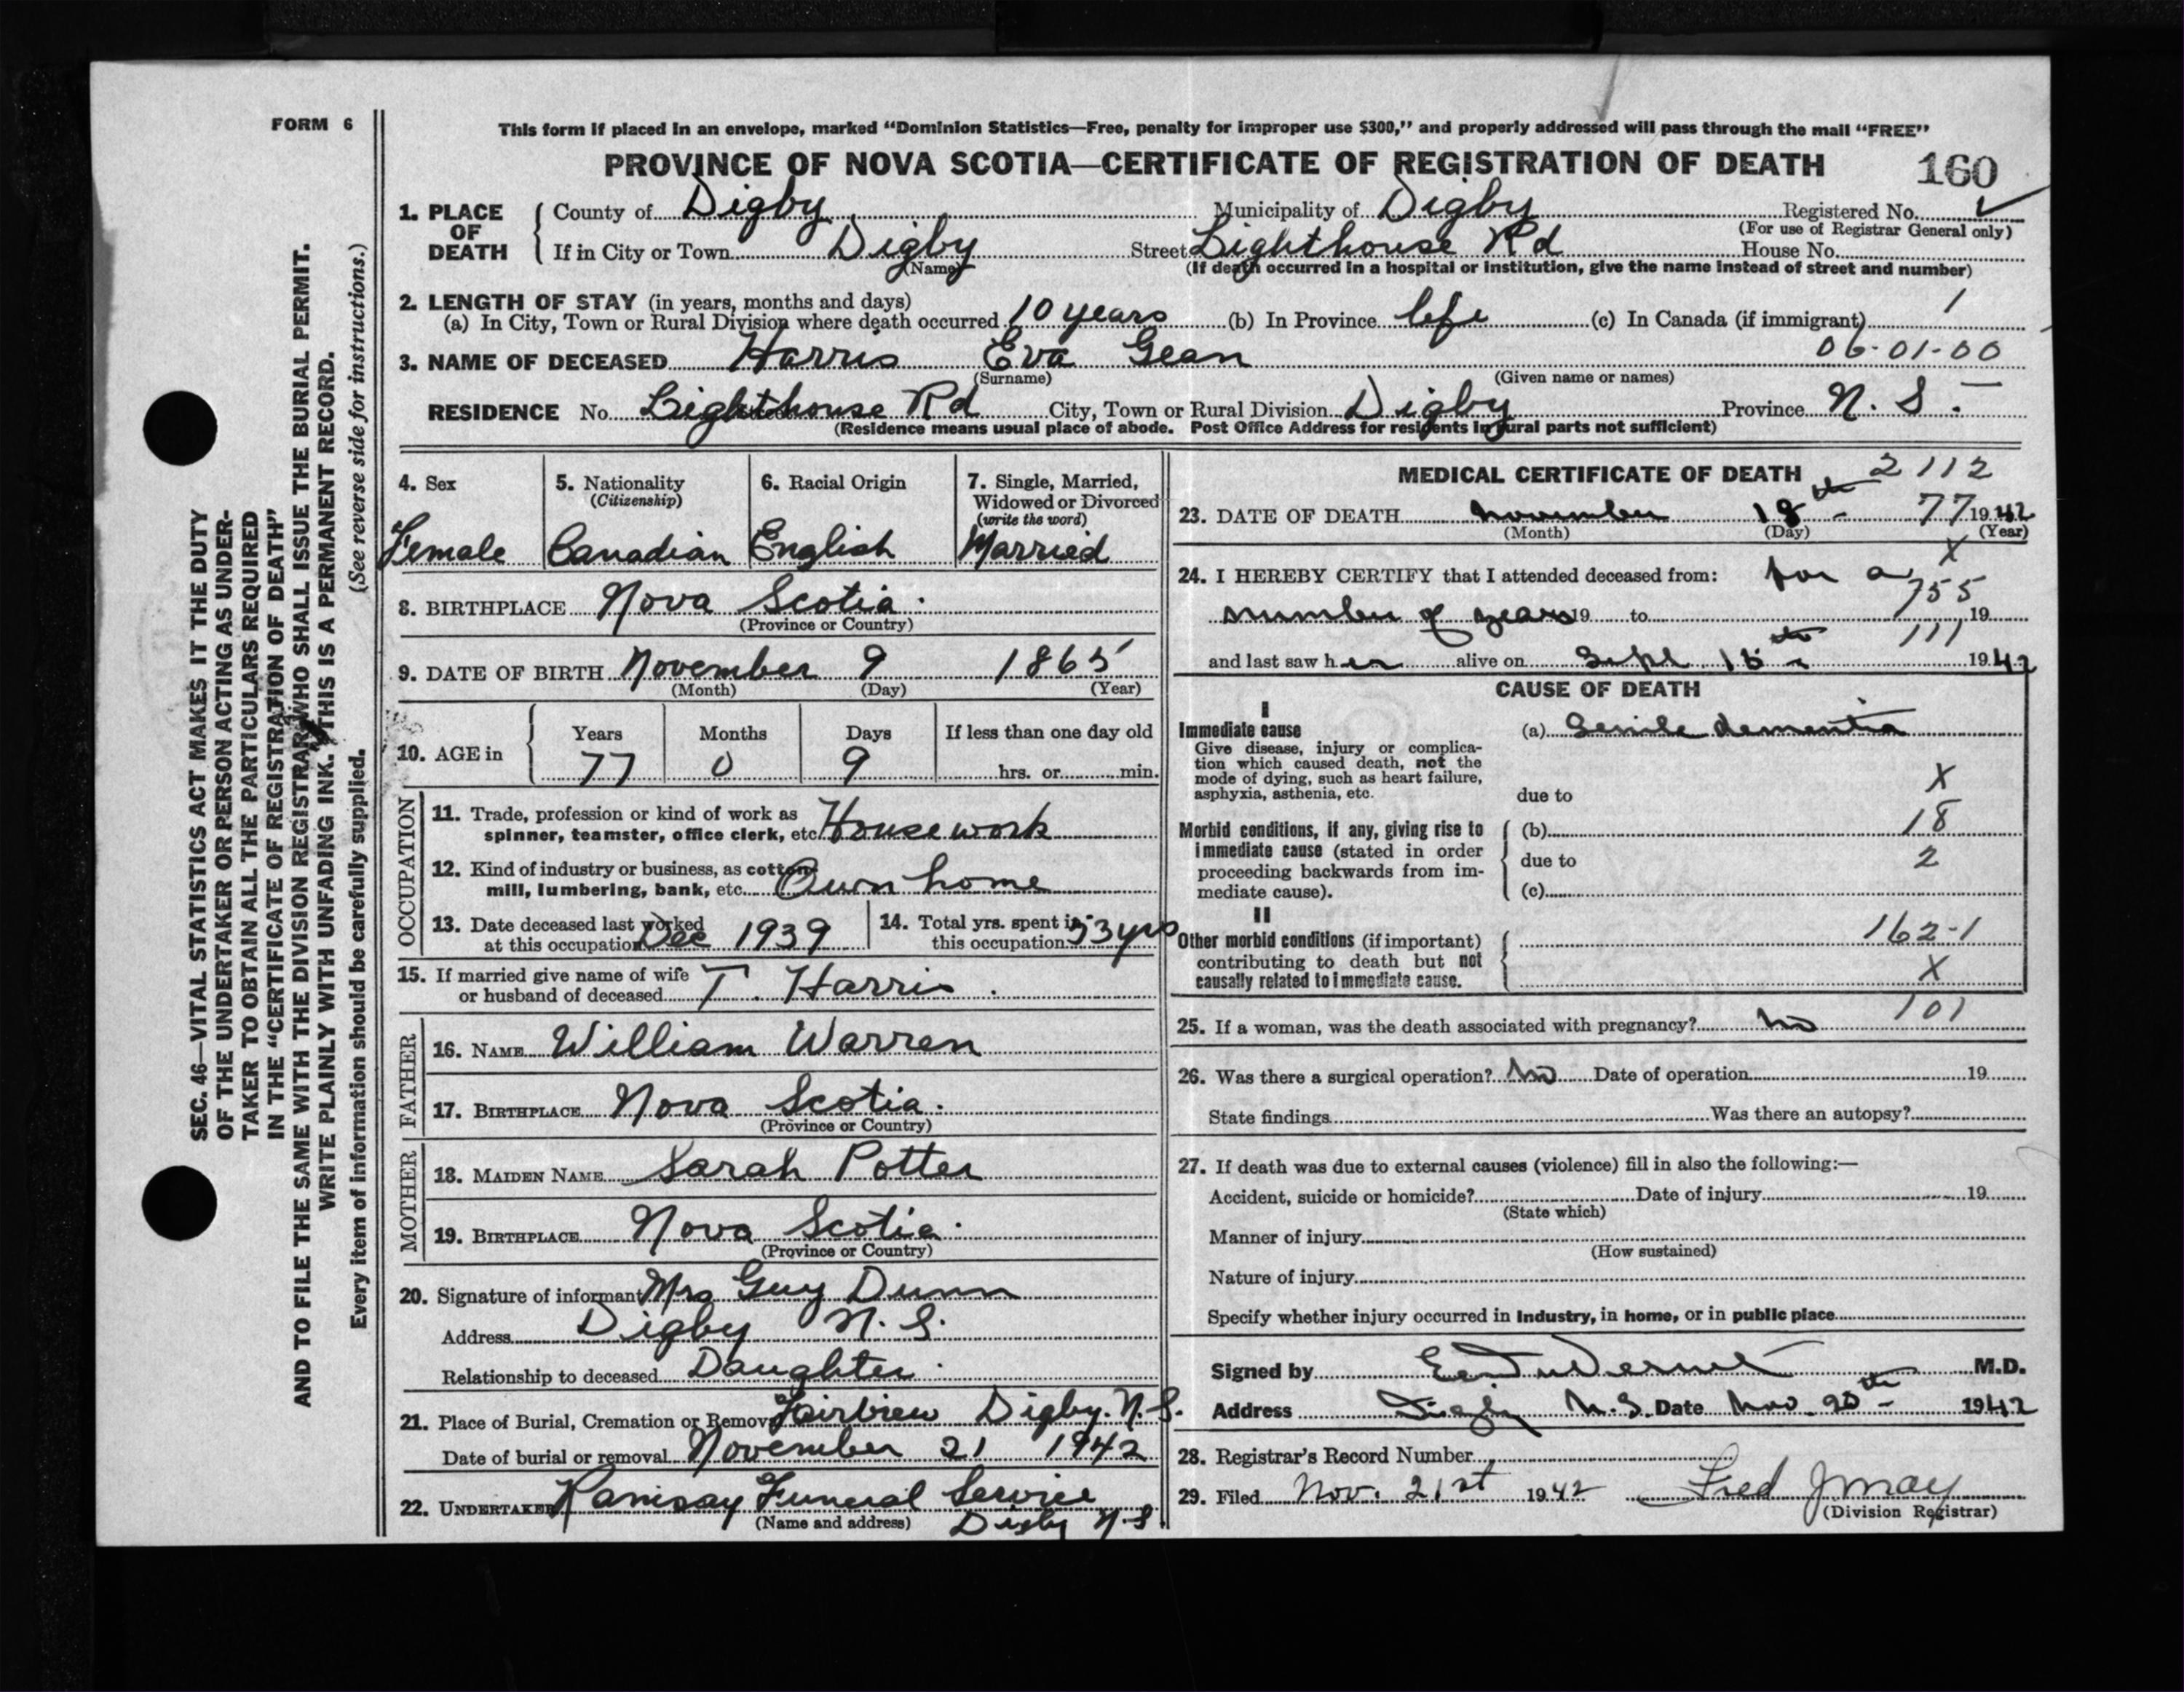 FORM 6
This form if placed in an envelope, marked "Dominion Statistics—Free, penalty for improper use $300," and properly addressed will pass through the mail "FREE"
PROVINCE OF NOVA SCOTIA—CERTIFICATE OF REGISTRATION OF DEATH 160
1. PLACE OF DEATH County of Digby Municipality of Digby Registered No. ✓
(For use of Registrar General only)
If in City or Town Digby Street Lighthouse Rd House No.
(Name) (If death occurred in a hospital or institution, give the name instead of street and number)
2. LENGTH OF STAY (in years, months and days) 1
(a) In City, Town or Rural Division where death occurred 10 years (b) In Province life (c) In Canada (if immigrant)
06-01-00
3. NAME OF DECEASED Harris Eva Gean
(Surname) (Given name or names)
RESIDENCE No. Lighthouse Rd City, Town or Rural Division Digby Province N. S.
(Residence means usual place of abode. Post Office Address for residents in rural parts not sufficient)
4. Sex 5. Nationality (Citizenship) 6. Racial Origin 7. Single, Married, Widowed or Divorced (write the word)
Female Canadian English Married
8. BIRTHPLACE Nova Scotia
(Province or Country)
9. DATE OF BIRTH November 9 1865
(Month) (Day) (Year)
10. AGE in Years Months Days If less than one day old
77 0 9 hrs. or min.
OCCUPATION
11. Trade, profession or kind of work as
spinner, teamster, office clerk, etc. Housework
12. Kind of industry or business, as cotton
mill, lumbering, bank, etc. Own home
13. Date deceased last worked
at this occupation Dec 1939
14. Total yrs. spent in
this occupation 53 yrs
15. If married give name of wife
or husband of deceased T. Harris
FATHER
16. NAME William Warren
17. BIRTHPLACE Nova Scotia.
(Province or Country)
MOTHER
18. MAIDEN NAME Sarah Potter
19. BIRTHPLACE Nova Scotia.
(Province or Country)
20. Signature of informant Mrs Guy Dunn
Address Digby N. S.
Relationship to deceased Daughter
21. Place of Burial, Cremation or Removal Fairview Digby. N. S.
Date of burial or removal November 21 1942
22. UNDERTAKER Ramsay Funeral Service
(Name and address) Digby N.S
MEDICAL CERTIFICATE OF DEATH 2112
23. DATE OF DEATH November 18th 77 1942
(Month) (Day) (Year)
X
24. I HEREBY CERTIFY that I attended deceased from: for a
755
number of years 19 to 19
111
and last saw her alive on Sept 18th 1942
CAUSE OF DEATH
I
Immediate cause (a) Senile dementia
Give disease, injury or complica-
tion which caused death, not the
mode of dying, such as heart failure,
asphyxia, asthenia, etc. due to X
Morbid conditions, if any, giving rise to (b) 18
immediate cause (stated in order due to 2
proceeding backwards from im-
mediate cause). (c)
II
Other morbid conditions (if important) 162-1
contributing to death but not
causally related to immediate cause. X
101
25. If a woman, was the death associated with pregnancy? no
26. Was there a surgical operation? No Date of operation 19
State findings Was there an autopsy?
27. If death was due to external causes (violence) fill in also the following:—
Accident, suicide or homicide? Date of injury 19
(State which)
Manner of injury
(How sustained)
Nature of injury
Specify whether injury occurred in industry, in home, or in public place
Signed by M.D.
Address Digby N.S. Date Nov. 20th 1942
28. Registrar's Record Number
29. Filed Nov. 21st 1942 Fred J May
(Division Registrar)
SEC. 46—VITAL STATISTICS ACT MAKES IT THE DUTY
OF THE UNDERTAKER OR PERSON ACTING AS UNDER-
TAKER TO OBTAIN ALL THE PARTICULARS REQUIRED
IN THE "CERTIFICATE OF REGISTRATION OF DEATH"
AND TO FILE THE SAME WITH THE DIVISION REGISTRAR WHO SHALL ISSUE THE BURIAL PERMIT.
WRITE PLAINLY WITH UNFADING INK. THIS IS A PERMANENT RECORD.
Every item of information should be carefully supplied. (See reverse side for instructions.)